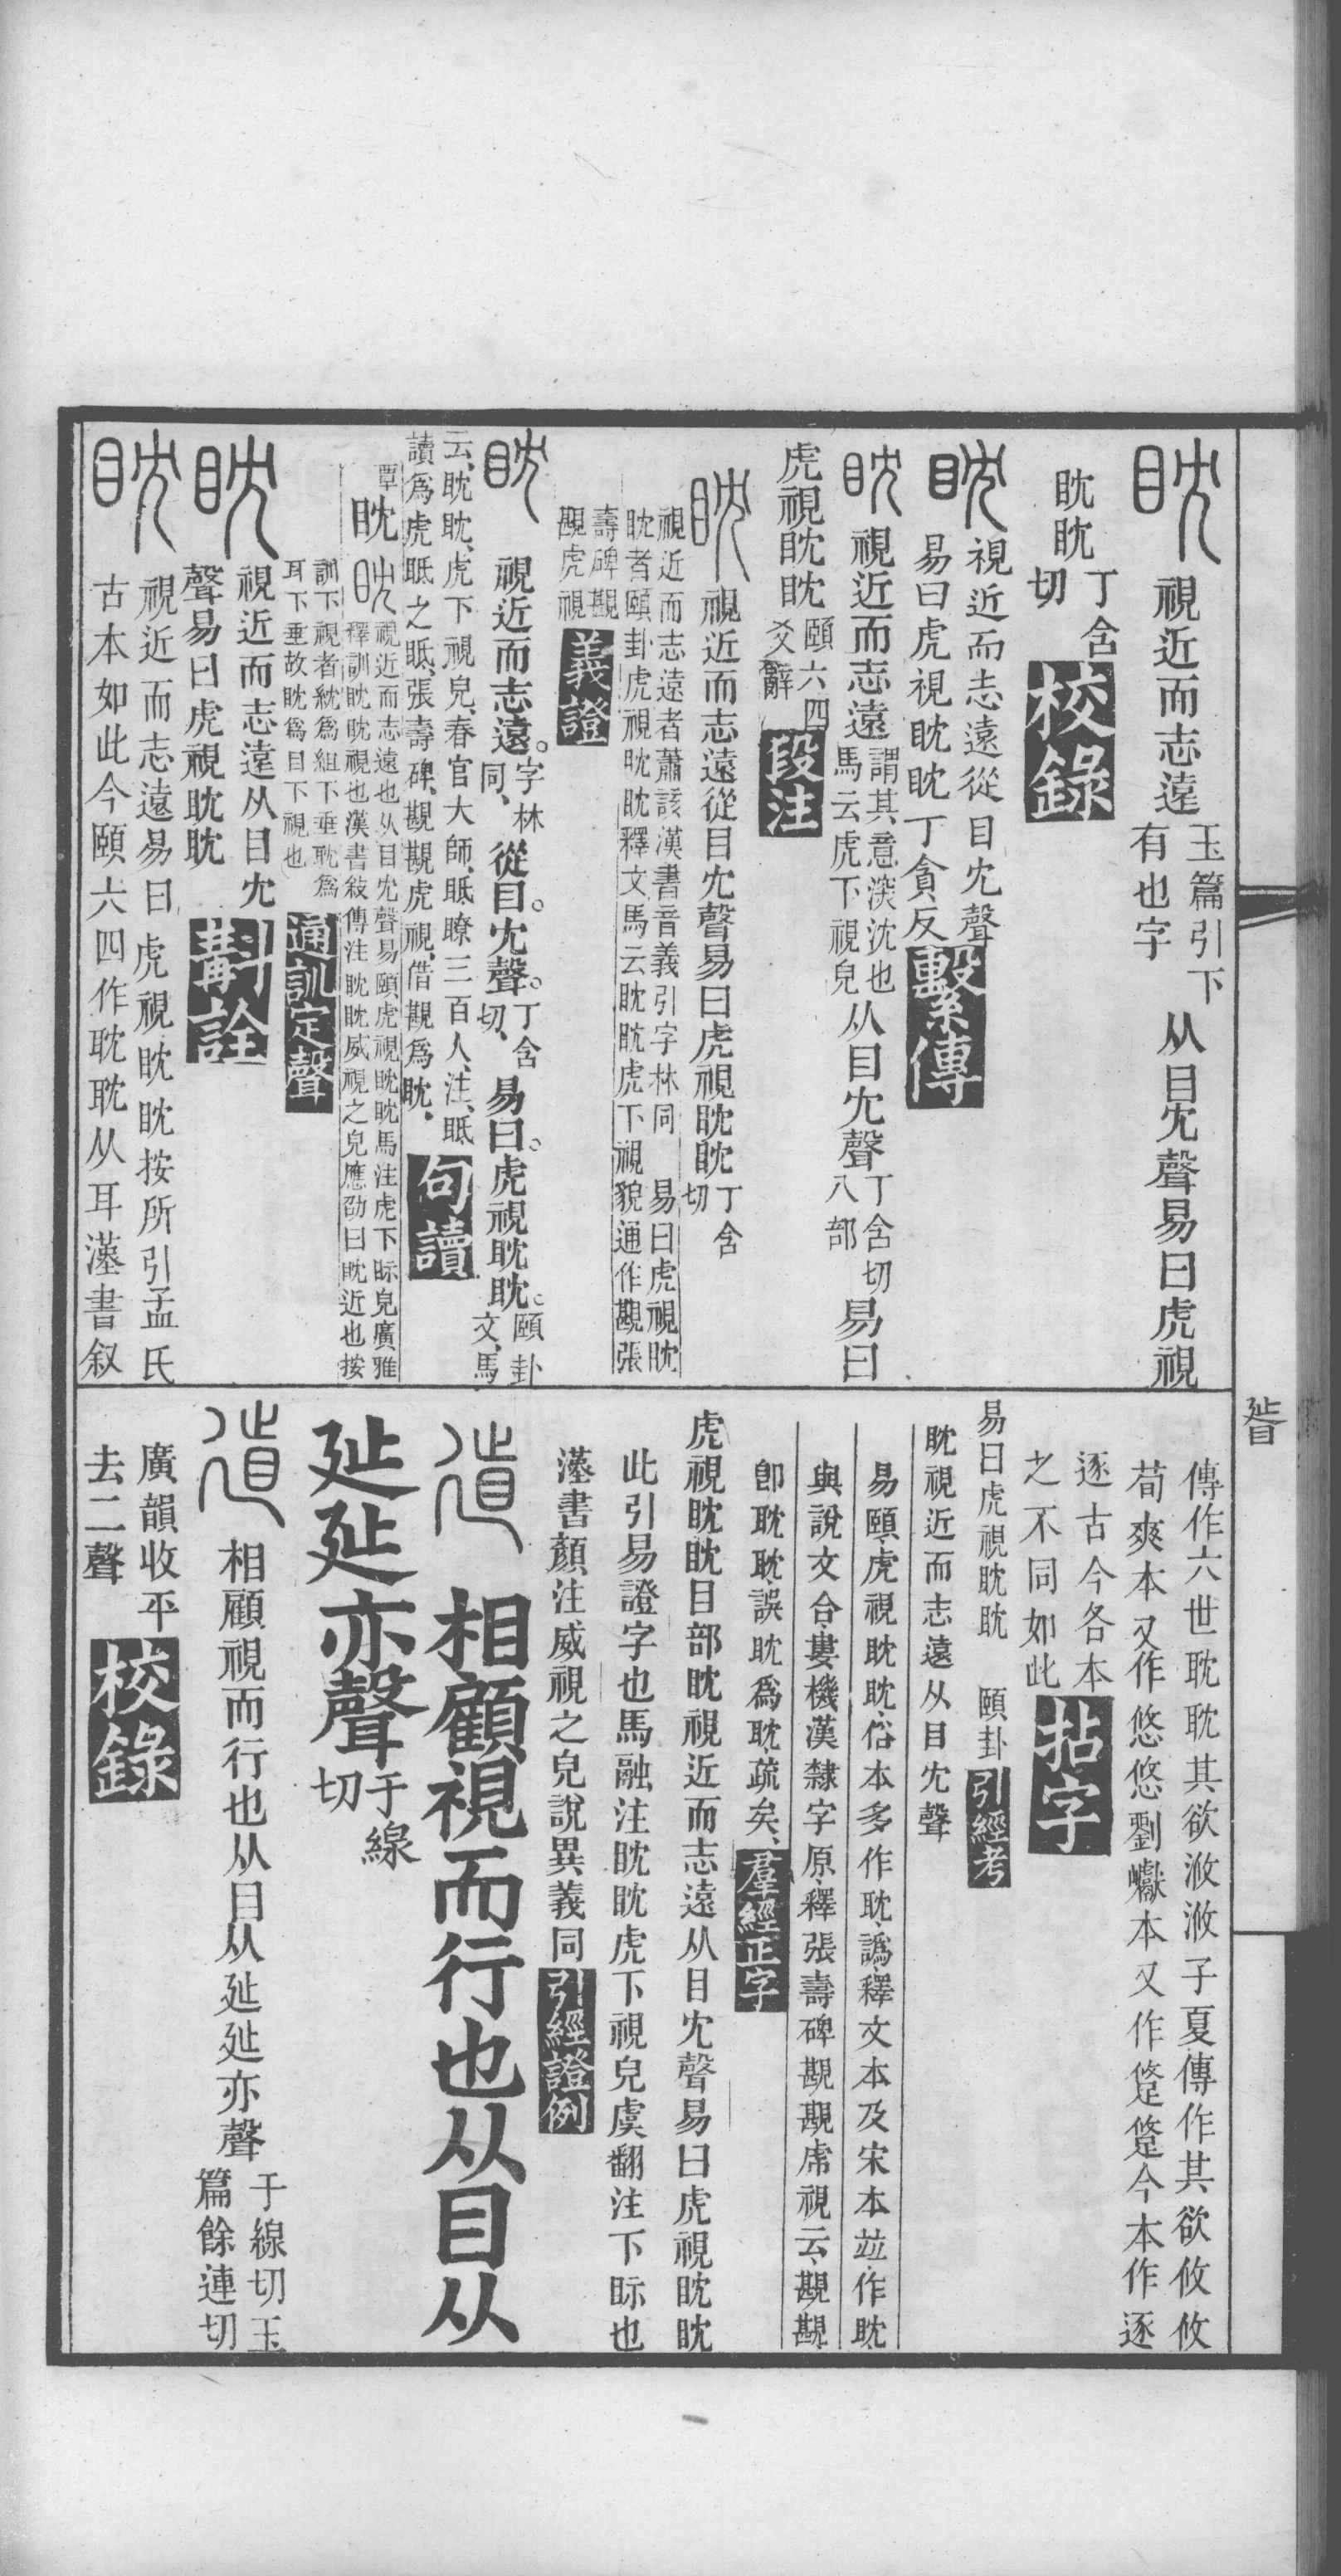 眈 視近而志遠 玉篇引下有也字 从目冘聲易曰虎視
眈眈 丁含切 校錄
眈 視近而志遠從目冘聲
易曰虎視眈眈丁貪反 繫傳
眈 視近而志遠 謂其意深沈也馬云虎下視皃 从目冘聲 丁含切八部 易曰
虎視眈眈 頤六四爻辭 段注
眈 視近而志遠從目冘聲易曰虎視眈眈 丁含切
視近而志遠者蕭該漢書音義引字林同 易曰虎視眈
眈者頤卦虎視眈眈釋文馬云眈眈虎下視貌通作覿張
壽碑覿
覿虎視 義證
眈 視近而志遠。字林同、從目。冘聲。丁含切、易曰。虎視眈眈。頤卦文、馬
云、眈眈、虎下視皃、春官大師、眂瞭三百人、注、眂
讀爲虎眂之眂、張壽碑、覿覿虎視、借覿爲眈、 句讀
覃 眈 眈 視近而志遠也从目冘聲易頤虎視眈眈馬注虎下眎皃廣雅
釋訓眈眈視也漢書敍傳注眈眈威視之皃應劭曰眈近也按
訓下視者紞爲組下垂耽爲
耳下垂故眈爲目下視也 通訓定聲
眈 視近而志遠从目冘
聲易曰虎視眈眈 斠詮
眈 視近而志遠易曰虎視眈眈按所引孟氏
古本如此今頤六四作耽耽从耳漢書叙
傳作六世耽耽其欲浟浟子夏傳作其欲攸攸
荀爽本又作悠悠劉巘本又作跾跾今本作逐
逐古今各本
之不同如此 拈字
易曰虎視眈眈 頤卦 引經考
眈視近而志遠从目冘聲
易頤、虎視眈眈、俗本多作耽、譌、釋文本及宋本並作眈、
與說文合、婁機漢隸字原、釋張壽碑覿覿虎視云、覿覿
卽眈眈、誤眈爲耽、疏矣、 羣經正字
虎視眈眈目部眈視近而志遠从目冘聲易曰虎視眈眈
此引易證字也馬融注眈眈虎下視皃虞翻注下眎也
漢書顏注威視之皃說異義同 引經證例
相顧視而行也从目从
㢟㢟亦聲 于線切
相顧視而行也从目从㢟㢟亦聲 于線切玉篇餘連切
廣韻收平
去二聲 校錄